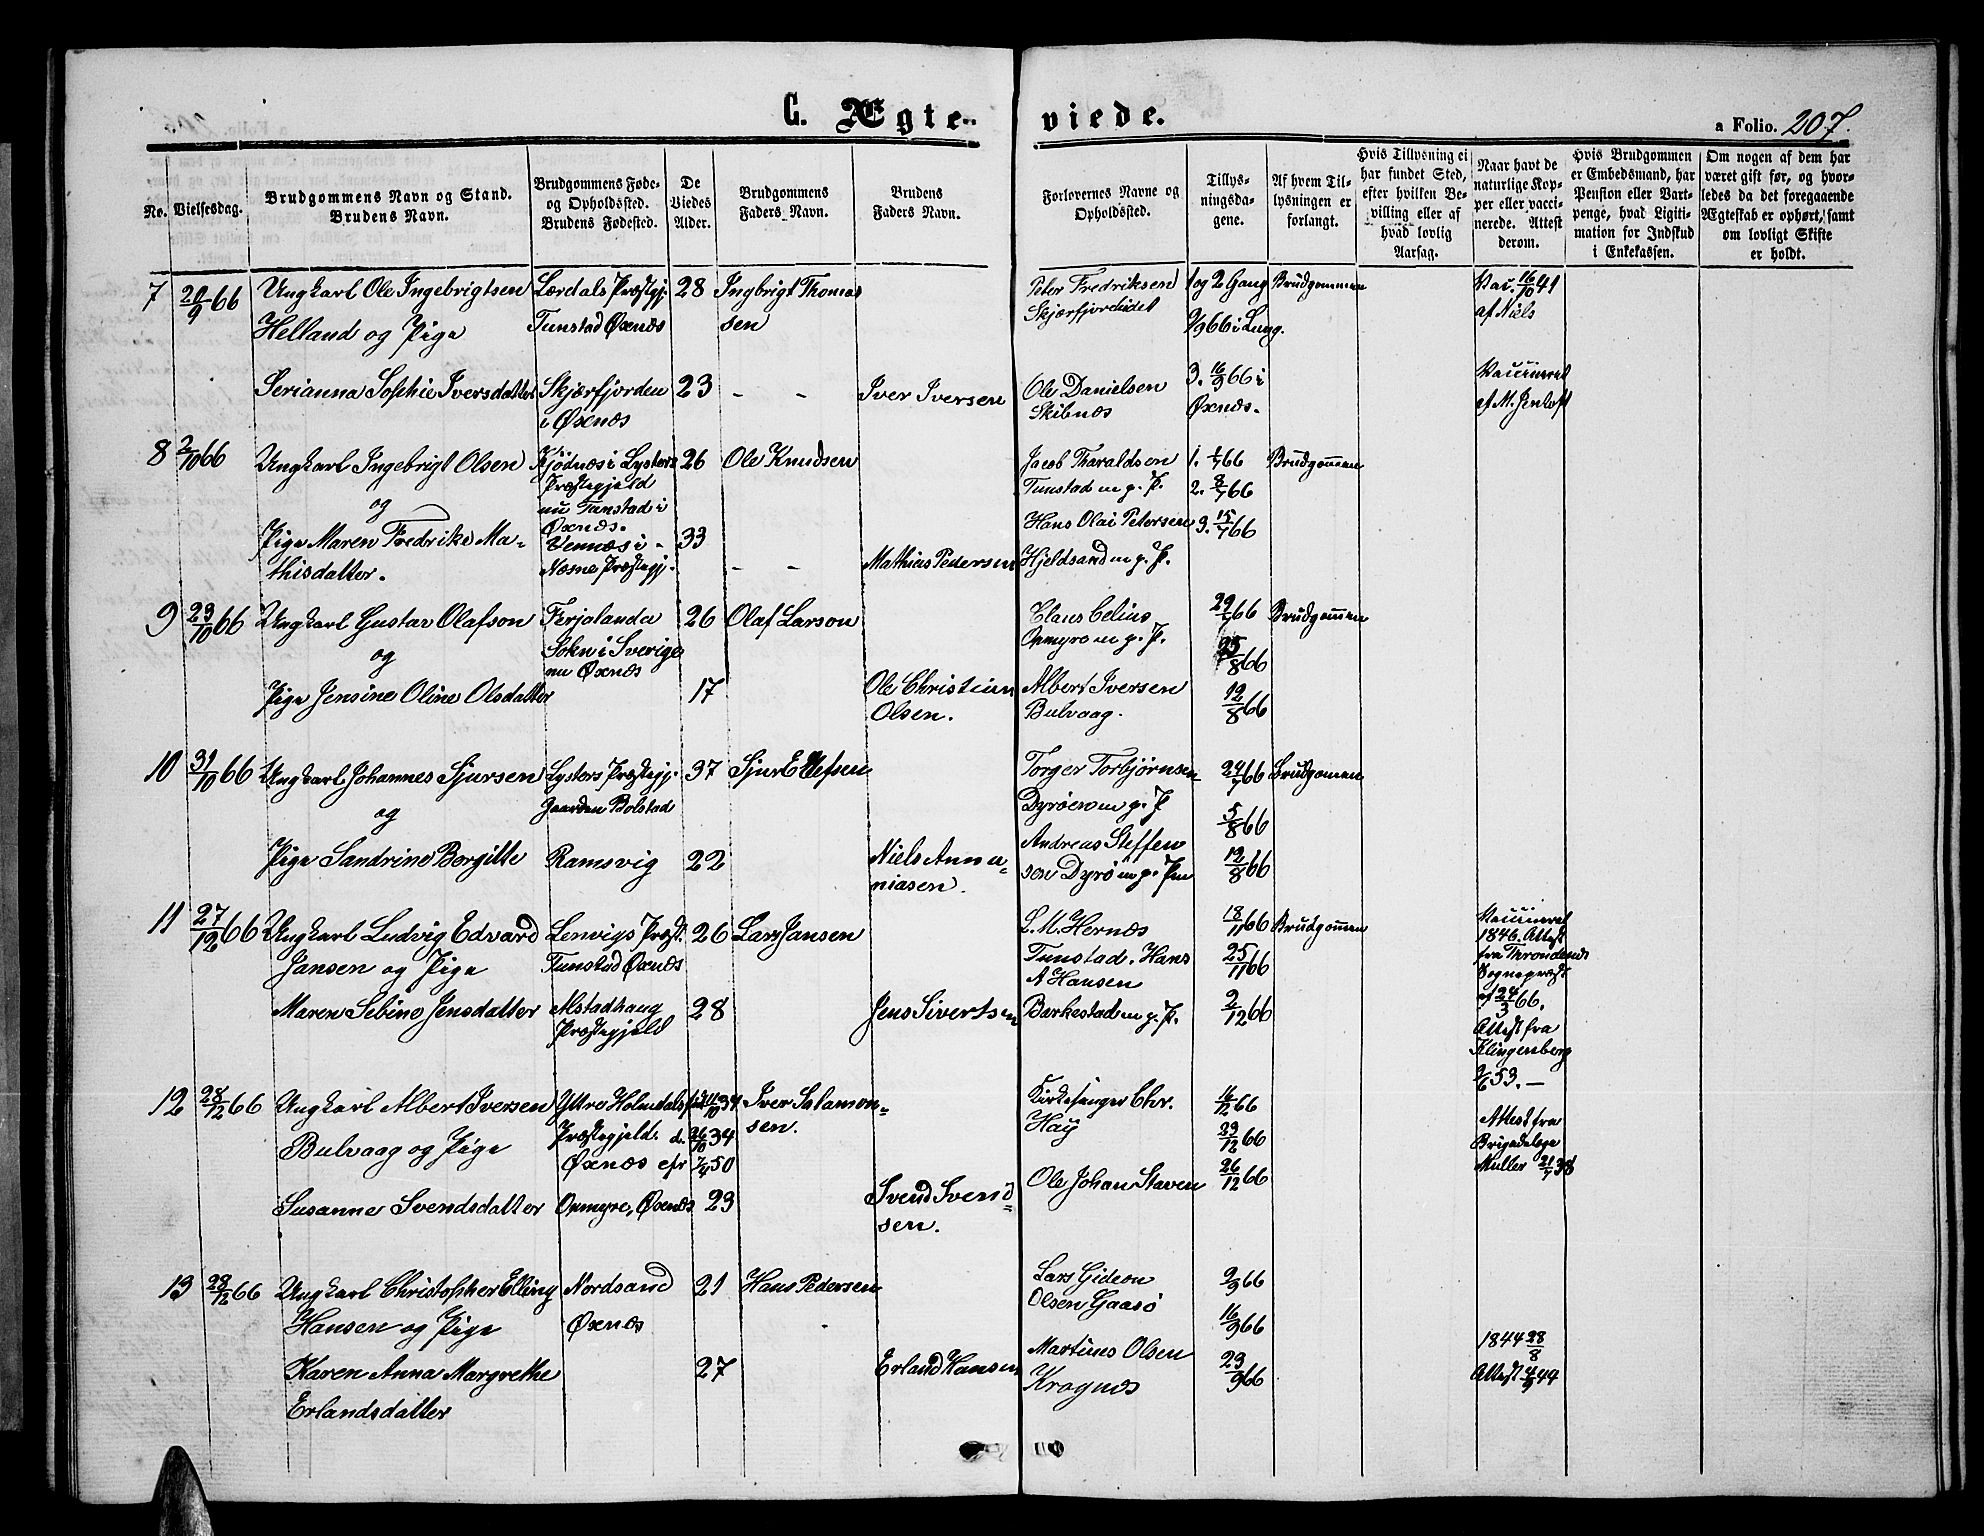 C. Ægte-
viede.
a Folio. 207.
No.
Vielsesdag.
Brudgommens Navn og Stand.
Brudens Navn.
Brudgommens Føde-
og Opholdssted.
Brudens Fødested.
De
Viedes
Alder.
Brudgommens
Faders Navn.
Brudens
Faders Navn.
Forlovernes Navne og
Opholdssted.
Tillys-
ningsda-
gene.
Af hvem Til-
lysningen er
forlangt.
Hvis Tillysning ei
har fundet Sted,
efter hvilken Be-
villing eller af
hvad lovlig
Aarsag.
Naar havt de
naturlige Kop-
per eller vacci-
nerede. Attest
derom.
Hvis Brudgommen
er Embedsmand, har
Pension eller Vart-
penge, hvad Ligiti-
mation for Indskud
i Enkekassen.
Om nogen af dem har
været gift før, og hvor-
ledes da det foregaaende
Ægteskab er ophørt, samt
om lovligt Skifte
er holdt.
7 20/9 66 Ungkarl Ole Ingebrigtsen Lærdals Præstegj. 28 Ingbrigt Thomas Peter Fredriksen 1 og 2 Gang Brudgommen Vac. 16/10 41
Helland og Pige Tunstad Øxnæs sen Skjærfjordeidet 9/9 66 i Lang. af Niels
Serianna Sophie Iversdatter Skjærfjorden 23 - - Iver Iversen Ole Danielsen 3. 16/9 66 i Vaccineret
i Øxnæs Skibnæs Øxnæs. af M. Jenloft
8 2/10 66 Ungkarl Ingebrigt Olsen Kjødnæs i Lysters 26 Ole Knudsen Jacob Tharaldsen 1. 1/7 66 Brudgommen
og Præstegjeld nu Tunstad i Øxnæs. Tunstad m. g. P. 2. 8/7 66
Pige Maren Fredrike Ma- Vennæs i 33 Hans Olai Petersen 3. 15/7 66
thisdatter. Næsne Præstegj. - - Mathias Pedersen Hjeldsand m. g. P.
9 23/10 66 Ungkarl Gustav Olafson Ferjelanda 26 Olaf Larson Claus Celius 29/7 66 Brudgommen
og Sokn i Sverige nu Øxnæs Opmyre m. g. P. 25/8 66
Pige Jensine Oline Olsdatter 17 Ole Christian Albert Iversen 12/8 66
Olsen. Bulvaag.
10 31/10 66 Ungkarl Johannes Sjursen Lysters Præstegj. 37 Sjur Ellefsen Torger Torbjørnsen 29/7 66 Brudgommen
og Gaarden Bolstad Dyrøen m. g. P. 5/8 66
Pige Sandrine Borgitte Ramsvig 22 Niels Anna- Andreas Steffen 12/8 66
niasen. sen Dyrø m. g. P.
11 27/12 66 Ungkarl Ludvig Edvard Lenvigs Præst. 26 Lars Jansen L. M. Hernæs 18/11 66 Brudgommen Vaccineret
Jansen og Pige Tunstad Øxnæs Tunstad. Hans 25/11 66 1846. Attest
A Hansen fra Throndenes
Sognepræst
Maren Sebine Jensdatter Alstadhaug 28 Jens Sivertsen Barkestad m. g. P. 2/12 66 af 24/3 66.
Præstegjeld Attest fra
Klingenberg
2/6 53. -
12 28/12 66 Ungkarl Albert Iversen Yttre Holmdals 11/10 34 Iver Salamon- Kirkesanger Chr. 16/12 66
Bulvaag og Pige Præstegjeld. d. 26/10 34 sen. Høy 23/12 66 Attest fra
Øxnæs cfr 7/4 50 Brigadelæge
Susanne Svendsdatter Opmyre, Øxnæs 23 Svend Svend- Ole Johan Staven 26/12 66 Muller 21/7 38
sen.
13 28/12 66 Ungkarl Christopher Elling Nordsand 21 Hans Pedersen Lars Gideon 2/9 66
Hansen og Pige Øxnæs Olsen Gaasø 16/9 66
Karen Anna Margrethe 27 Erland Hansen Martinus Olsen 23/9 66 1844 28/8
Erlandsdatter Kragnæs Attest 4/9 44